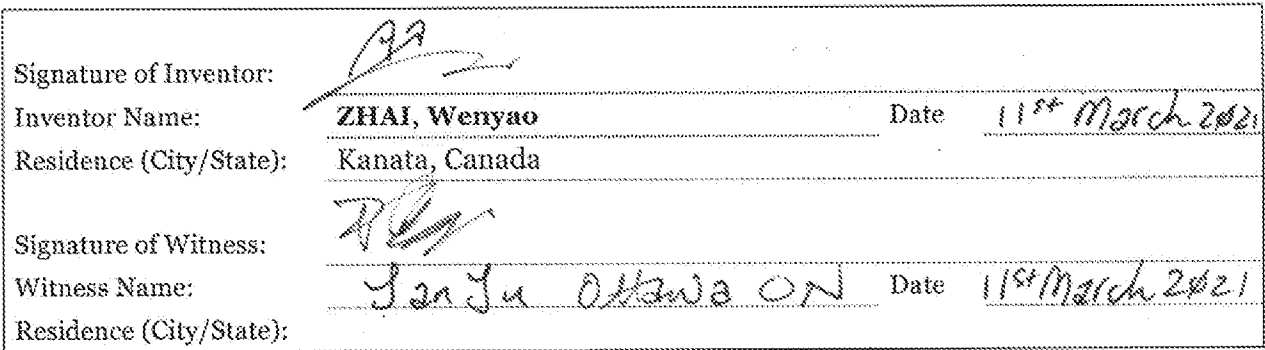 Signature of Inventor:
Inventor Name: ZHAI, Wenyao Date 11st March 2021
Residence (City/State): Kanata, Canada
Signature of Witness:
Witness Name: Ottawa ON Date 11st March 2021
Residence (City/State):